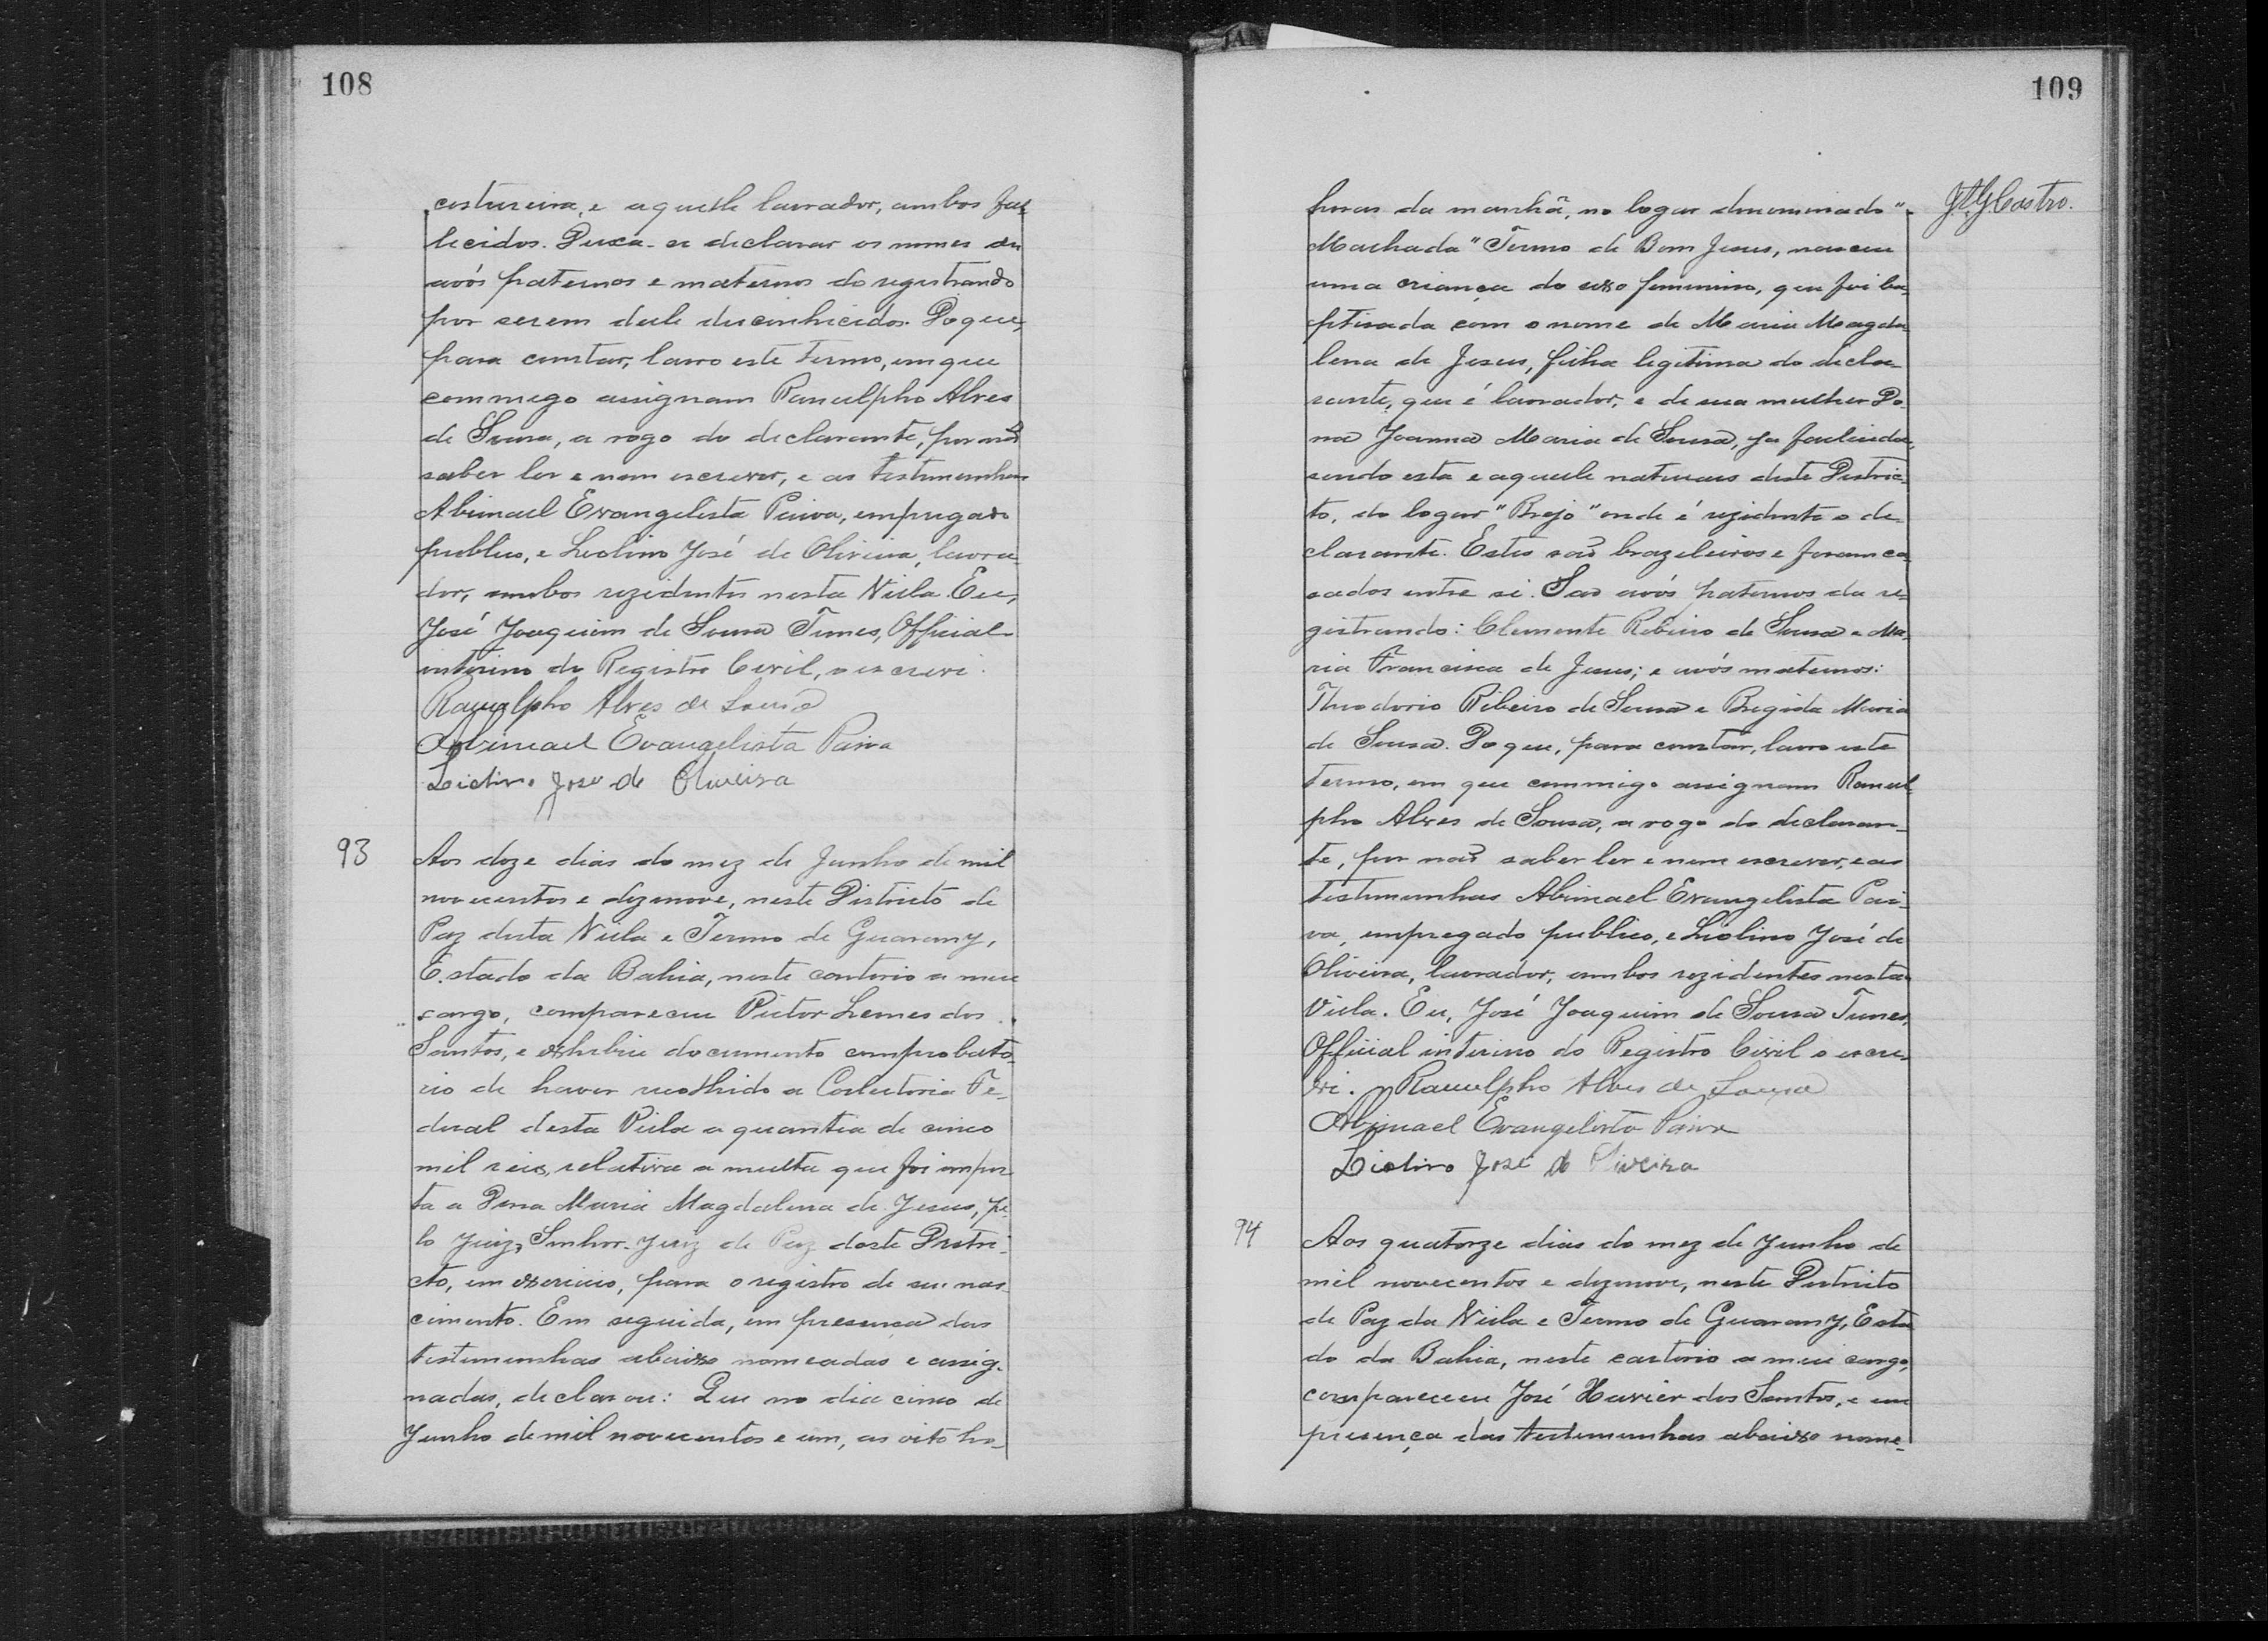 108
costureira, e aquelle lavrador, ambos fal-
lecidos. Deixa-se declarar os nomes dos
avós paternos e maternos do registrando
por serem delle desconhecidos. Do que,
para constar, lavro este termo, em que
commigo assignam Ranulpho Alves
de Sousa, a rogo do declarante, por não
saber ler e nem escrever, e as testemunhas
Abimael Evangelista Paiva, empregado
publico, e Liolino José de Oliveira, lavra-
dor, ambos rezidentes nesta Villa. Eu,
José Joaquim de Sousa Tunes, Official
interino do Registro Civil, o escrevi.
Ranulpho Alves de Sousa
Abimael Evangelista Paiva
Liolino José de Oliveira
93
Aos doze dias do mez de Junho de mil
novecentos e dezenove, neste Districto de
Paz desta Villa e Termo de Guarany,
Estado da Bahia, neste cartorio a meu
cargo, compareceu Victor Lemes dos
Santos, e exhibiu documento comprobato-
rio de haver recolhido a Collectoria Fe-
deral desta Villa a quantia de cinco
mil reis, relativa a multa que foi impos-
ta a Dona Maria Magdalena de Jesus, pe-
lo Juiz, Senhor Juiz de Paz deste Distri-
cto, em exercicio, para o registro de seu nas-
cimento. Em seguida, em presença das
testemunhas abaixo nomeadas e assig-
nadas, declarou: Que no dia cinco de
Junho de mil novecentos e um, as oito ho-
109
horas da manhã, no logar denominado "
Machada" Termo de Bom Jesus, nasceu
uma criança do sexo feminino, que foi ba-
ptisada com o nome de Maria Magda-
lena de Jesus, filha legitima do decla-
rante, que é lavrador, e de sua mulher Do-
na Joanna Maria de Sousa, ja fallecida,
sendo esta e aquelle naturaes deste Distric-
to, do logar "Brejo" onde é rezidente o de-
clarante. Estes são brazileiros e foram ca-
sados entre si. São avós paternos da re-
gistrando: Clemente Ribeiro de Sousa e Ma-
ria Francisca de Jesus; e avós maternos:
Theodorio Ribeiro de Sousa e Brigida Maria
de Sousa. Do que, para constar, lavro este
termo, em que commigo assignam Ranul-
pho Alves de Sousa, a rogo do declaran-
te, por não saber ler e nem escrever, e as
testemunhas Abimael Evangelista Pai-
va, empregado publico, e Liolino José de
Oliveira, lavrador, ambos rezidentes nesta
Villa. Eu, José Joaquim de Sousa Tunes,
Official interino do Registro Civil o escre-
vi. Ranulpho Alves de Sousa
Abimael Evangelista Paiva
Liolino José de Oliveira
94
Aos quatorze dias do mez de Junho de
mil novecentos e dezenove, neste Districto
de Paz da Villa e Termo de Guarany, Esta
do da Bahia, neste cartorio a meu cargo,
compareceu José Xavier dos Santos, e em
presença das testemunhas abaixo nome-
Castro.